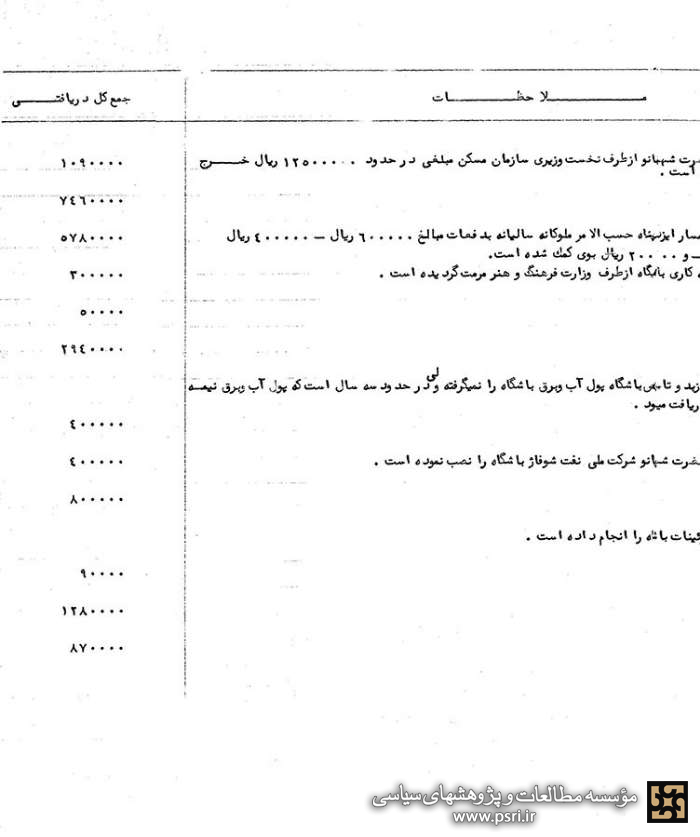 ملاحظات
جمع کل دریافتی
شهبانو ازطرف نخست وزیری سازمان مسکن مبلغی در حدود ۱۲۵۰۰۰۰۰ ریال خرج
۱۰۹۰۰۰۰
است .
۷٤٦۰۰۰۰
حسب الامر ملوکانه سالیانه بدفعات مبالغ ٦۰۰۰۰۰ ریال – ٤۰۰۰۰۰ ریال
۵۷۸۰۰۰۰
و ۲۰۰۰۰ ریال بوی کمک شده است.
کاری باشگاه ازطرف وزارت فرهنگ و هنر مرمت گردیده است .
۳۰۰۰۰۰
۵۰۰۰۰
۲۹٤۰۰۰۰
باشگاه پول آب وبرق باشگاه را نمیگرفته ولی در حدود سه سال است که پول آب وبرق نیمه
ریافت میود .
٤۰۰۰۰۰
شهبانو شرکت ملی نفت شوفاژ باشگاه را نصب نموده است .
٤۰۰۰۰۰
۸۰۰۰۰۰
را انجام داده است .
۹۰۰۰۰
۱۲۸۰۰۰۰
۸۷۰۰۰۰
مؤسسه مطالعات و پژوهشهای سیاسی
www.psri.ir